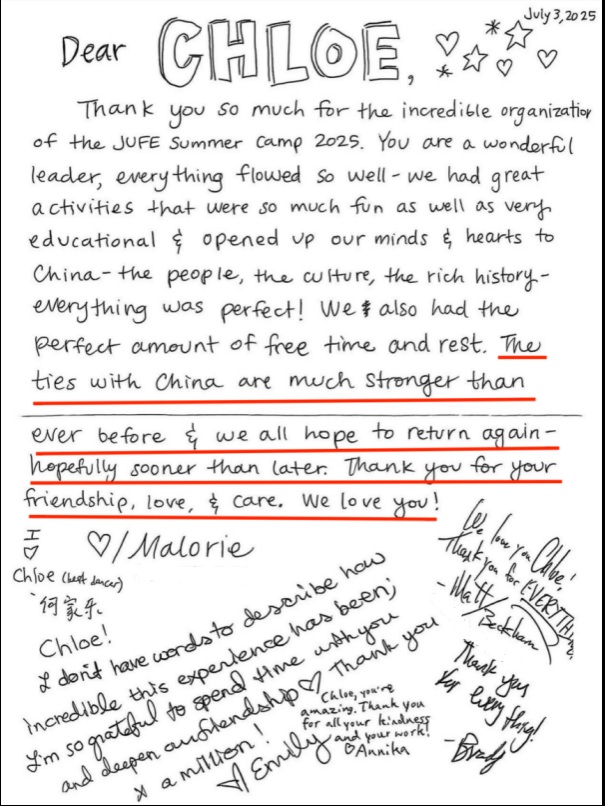 July 3, 2025
Dear CHLOE,
Thank you so much for the incredible organization
of the JUFE Summer Camp 2025. You are a wonderful
leader, everything flowed so well - we had great
activities that were so much fun as well as very
educational & opened up our minds & hearts to
China - the people, the culture, the rich history -
everything was perfect! We also had the
perfect amount of free time and rest. The
ties with China are much stronger than
ever before & we all hope to return again -
hopefully sooner than later. Thank you for your
friendship, love, & care. We love you!
♡/Malorie
I
♡
Chloe (best dancer)
何家乐
Chloe!
I don't have words to describe how
incredible this experience has been;
I'm so grateful to spend time with you
and deepen our friendship ♡ Thank you
x a million!
Emily
Chloe, you're
amazing. Thank you
for all your kindness
and your work!
♡Annika
We love you Chloe!
Thank you for EVERYTHING
- Matt/Beckham
Thank you
for everything!
- Brady